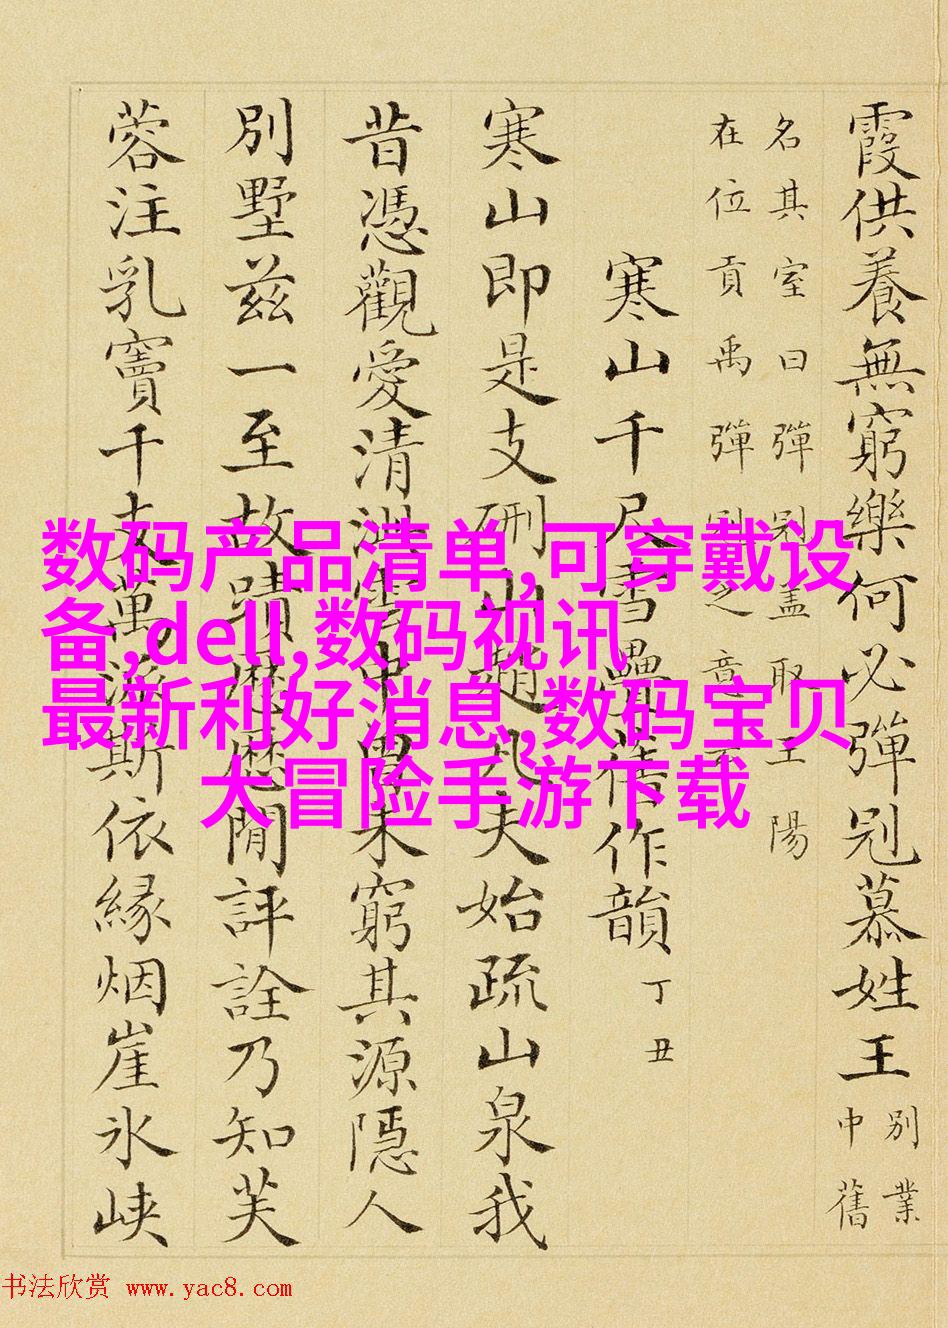 霞供養無窮樂何必彈冠慕姓王
別業
中舊
名其室曰彈冠蓋取王陽
在位貢禹彈冠之意
寒山千尺雪疊舊作韻 丁丑
寒山即是支硎山趙凡夫始疏山泉我
昔憑觀愛清雪中曾未窮其源隱人
別墅茲一至故蹟歷歷閒評詮乃知芙
蓉注乳竇千支萬派斯依緣烟崖氷峽
数码产品清单,可穿戴设
备,dell,数码视讯
最新利好消息,数码宝贝
大冒险手游下载
书法欣赏 www.yac8.com